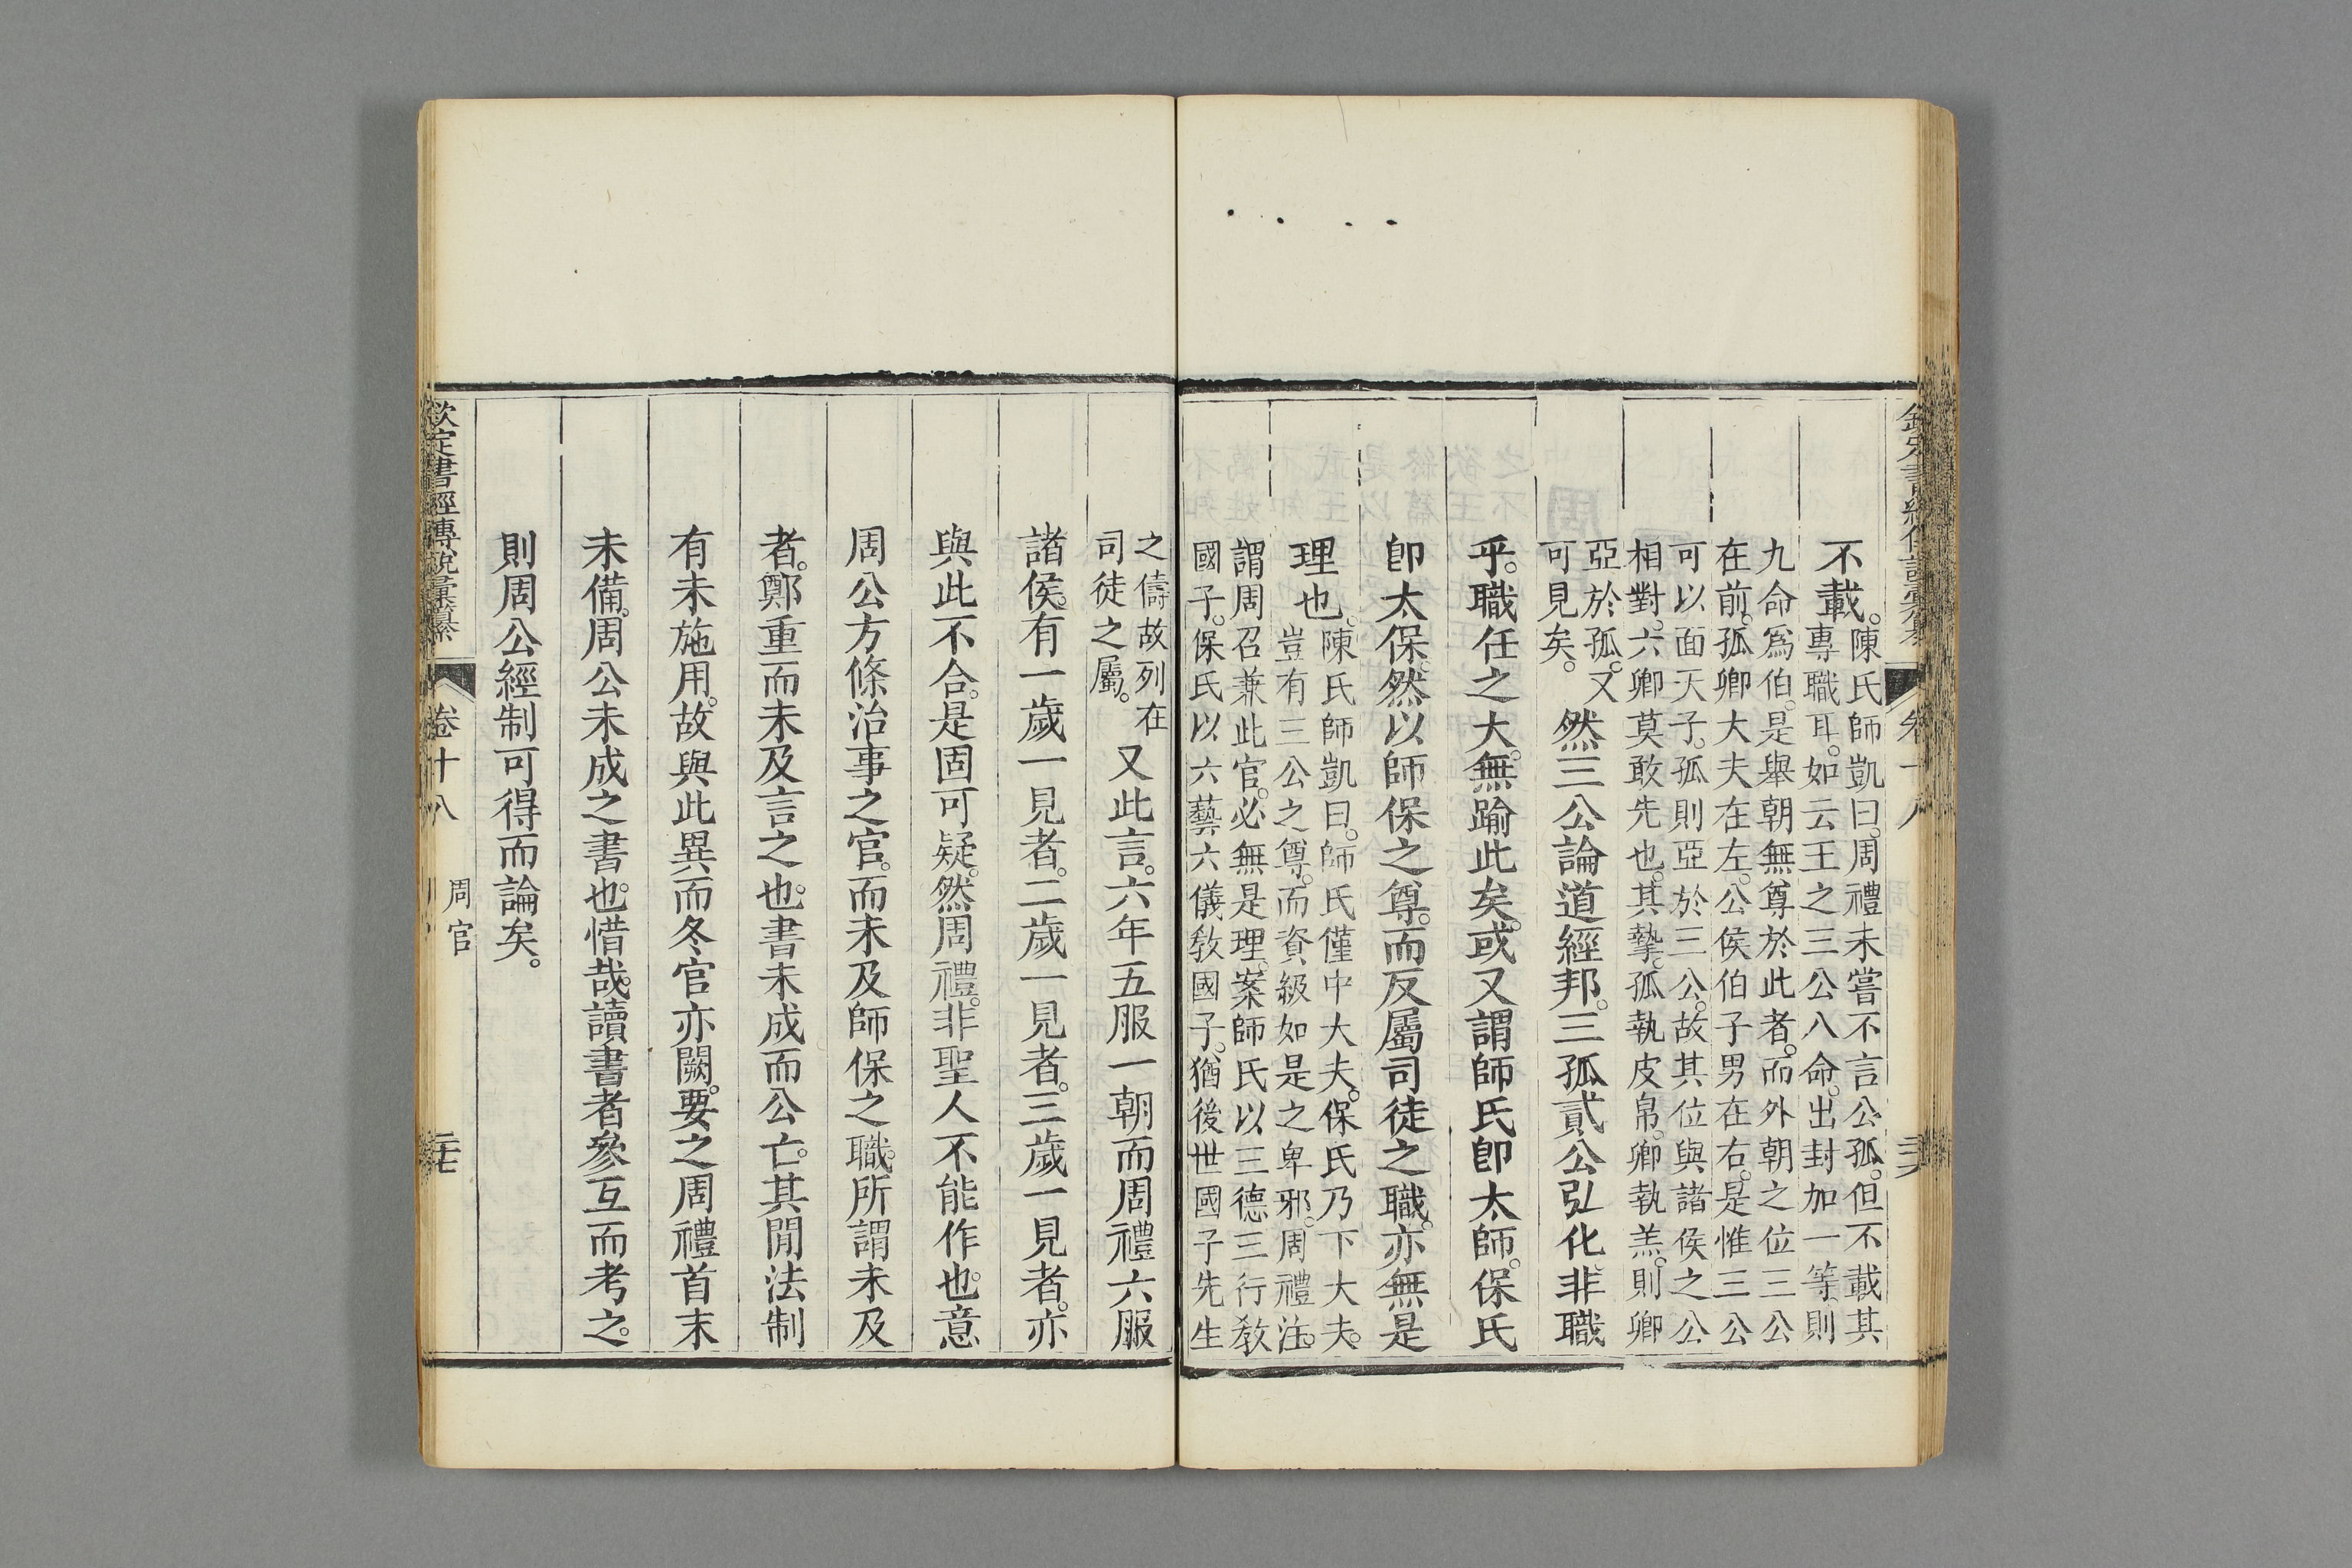 不載。陳氏師凱曰。周禮未嘗不言公孤。但不載其
專職耳。如云王之三公八命。出封加一等。則
九命爲伯。是舉朝無尊於此者。而外朝之位三公
在前。孤卿大夫在左。公侯伯子男在右。是惟三公
可以面天子。孤則亞於三公。故其位與諸侯之公
相對。六卿莫敢先也。其摯。孤執皮帛。卿執羔。則卿
亞於孤。又
可見矣。然三公論道經邦。三孤貳公弘化非職
乎。職任之大。無踰此矣。或又謂師氏卽太師。保氏
卽太保。然以師保之尊。而反屬司徒之職。亦無是
理也。陳氏師凱曰。師氏僅中大夫。保氏乃下大夫。
豈有三公之尊。而資級如是之卑邪。周禮注。
謂周召兼此官。必無是理。案師氏以三德三行敎
國子。保氏以六藝六儀敎國子。猶後世國子先生
之儔故列在
司徒之屬。又此言。六年五服一朝而周禮六服
諸侯。有一歲一見者。二歲一見者。三歲一見者。亦
與此不合。是固可疑。然周禮。非聖人不能作也。意
周公方條治事之官。而未及師保之職。所謂未及
者。鄭重而未及言之也。書未成而公亡。其閒法制
有未施用。故與此異而冬官亦闕。要之周禮首末
未備。周公未成之書也。惜哉。讀書者參互而考之。
則周公經制可得而論矣。
欽定書經傳說彙纂 卷十八 周官 二十七